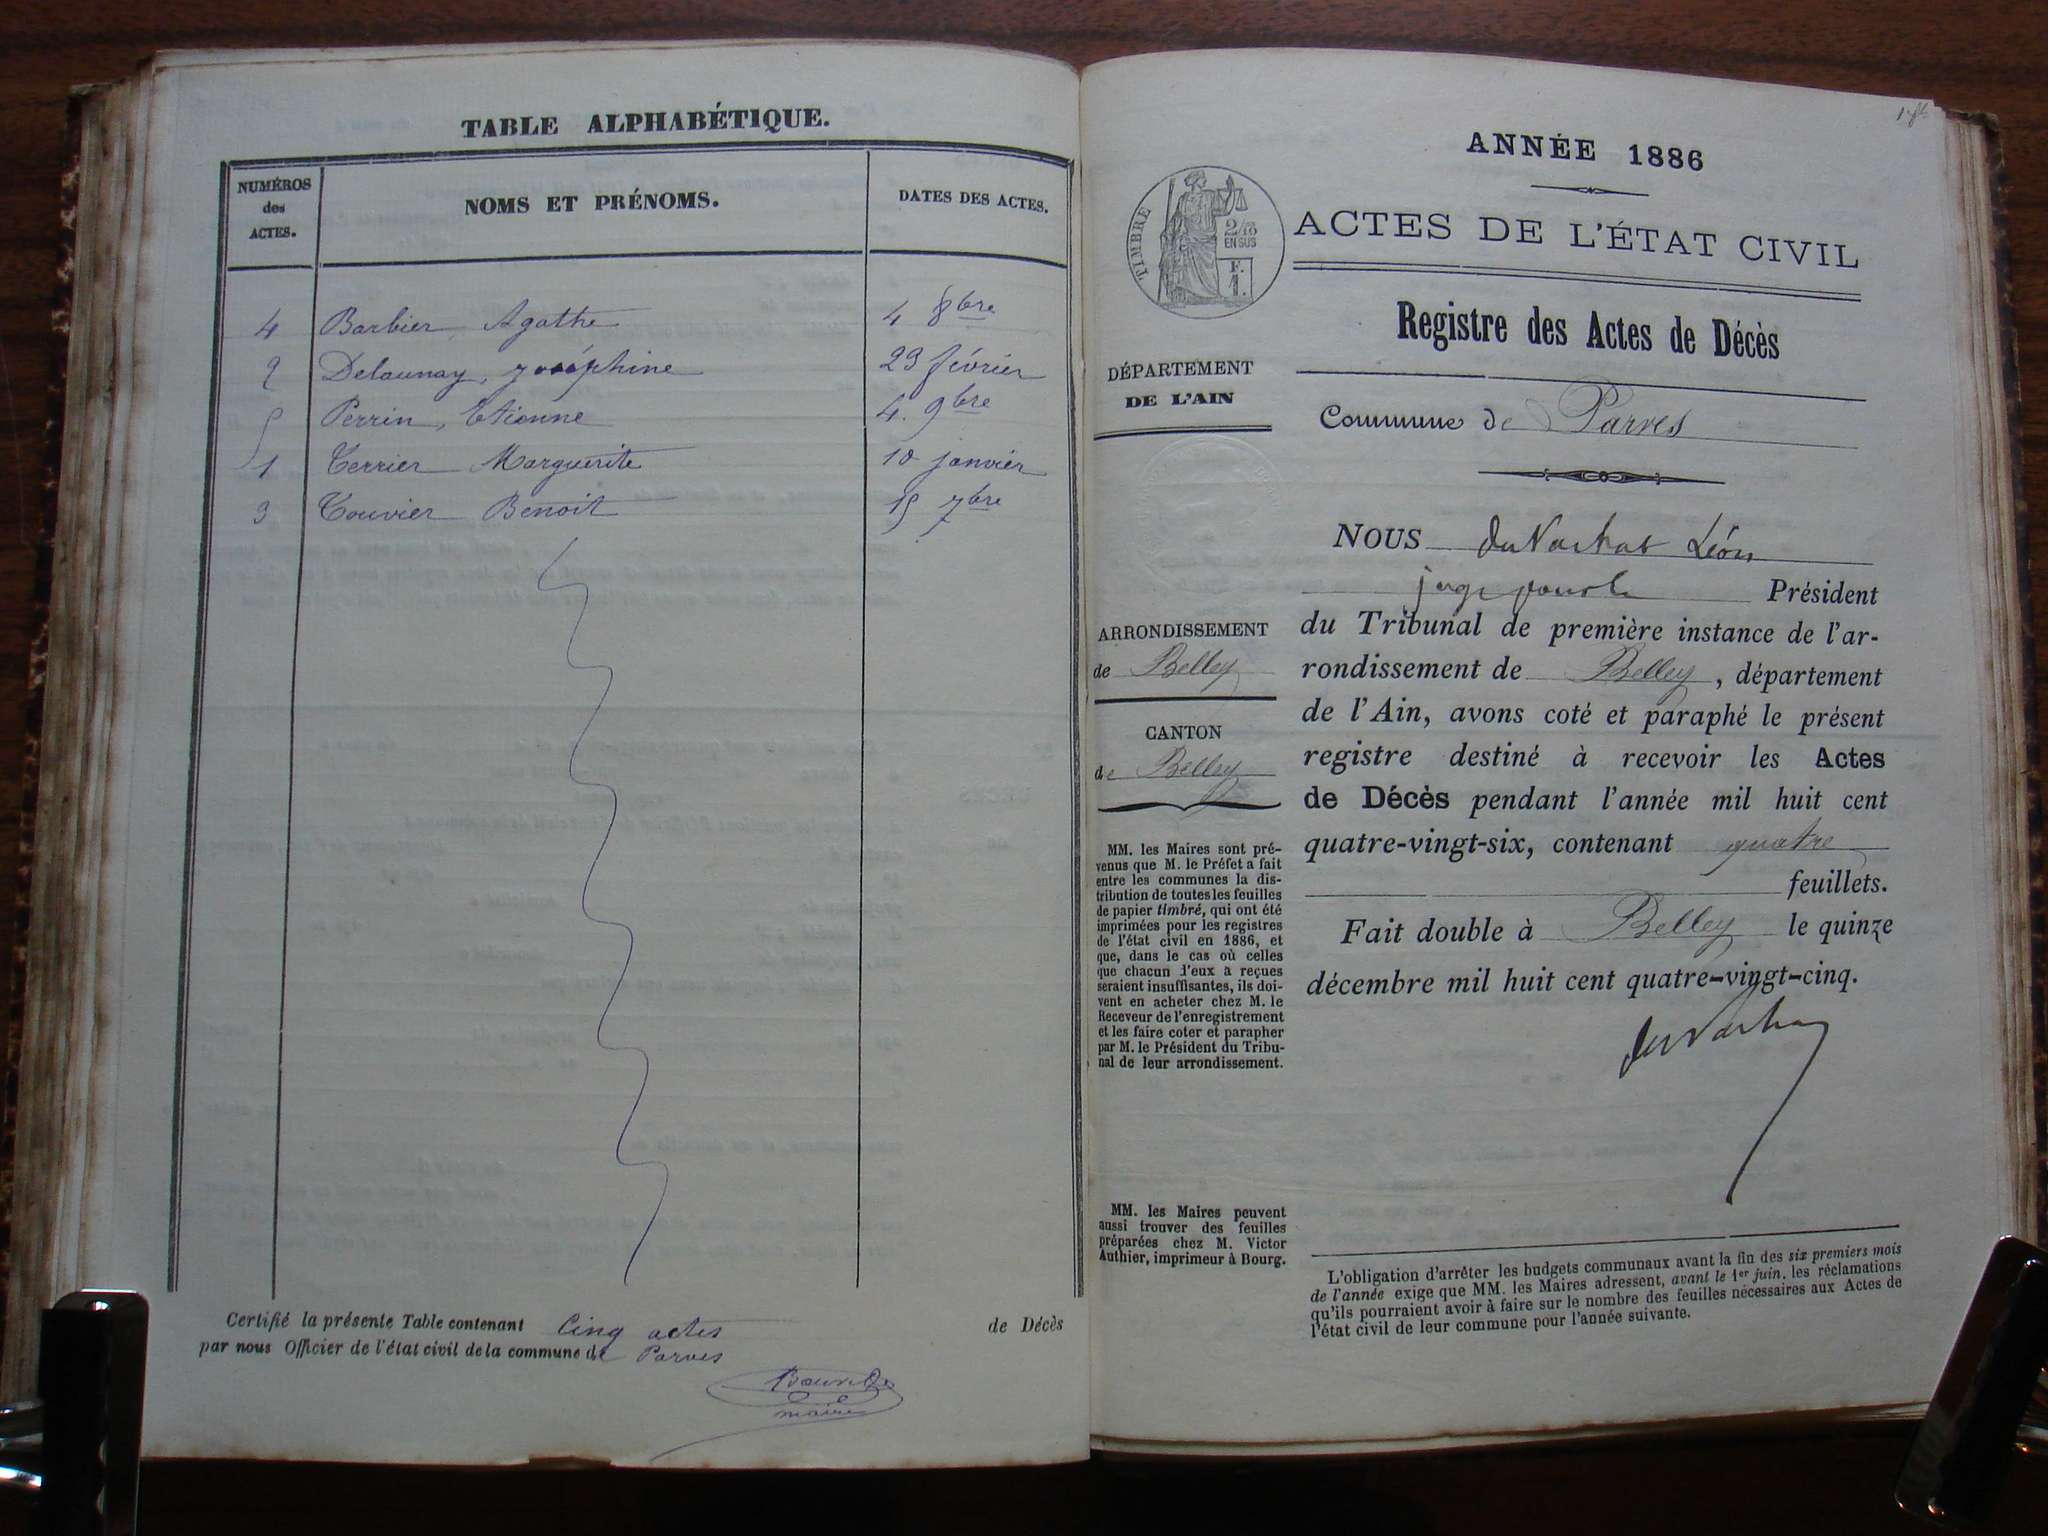 TABLE ALPHABÉTIQUE.
NUMÉROS des ACTES. NOMS ET PRÉNOMS. DATES DES ACTES.
4 Barbier Agathe 4 8bre
2 Delaunay, Joséphine 23 février
5 Perrin, Etienne 4. 9bre
1 Terrier Marguerite 10 janvier
3 Touvier Benoit 15 7bre
Certifié la présente Table contenant Cinq actes de Décès
par nous Officier de l'état civil de la commune de Parves
maire
ANNÉE 1886
ACTES DE L'ÉTAT CIVIL
TIMBRE
2/10
EN SUS
F.
1.
Registre des Actes de Décès
DÉPARTEMENT
DE L'AIN
Commune de Parves
ARRONDISSEMENT
de Belley
CANTON
de Belley
MM. les Maires sont pré-
venus que M. le Préfet a fait
entre les communes la dis-
tribution de toutes les feuilles
de papier timbré, qui ont été
imprimées pour les registres
de l'état civil en 1886, et
que, dans le cas où celles
que chacun d'eux a reçues
seraient insuffisantes, ils doi-
vent en acheter chez M. le
Receveur de l'enregistrement
et les faire coter et parapher
par M. le Président du Tribu-
nal de leur arrondissement.
MM. les Maires peuvent
aussi trouver des feuilles
préparées chez M. Victor
Authier, imprimeur à Bourg.
NOUS Léon
juge pour le Président
du Tribunal de première instance de l'ar-
rondissement de Belley, département
de l'Ain, avons coté et paraphé le présent
registre destiné à recevoir les Actes
de Décès pendant l'année mil huit cent
quatre-vingt-six, contenant quatre
feuillets.
Fait double à Belley le quinze
décembre mil huit cent quatre-vingt-cinq.
L'obligation d'arrêter les budgets communaux avant la fin des six premiers mois
de l'année exige que MM. les Maires adressent, avant le 1er juin. les réclamations
qu'ils pourraient avoir à faire sur le nombre des feuilles nécessaires aux Actes de
l'état civil de leur commune pour l'année suivante.